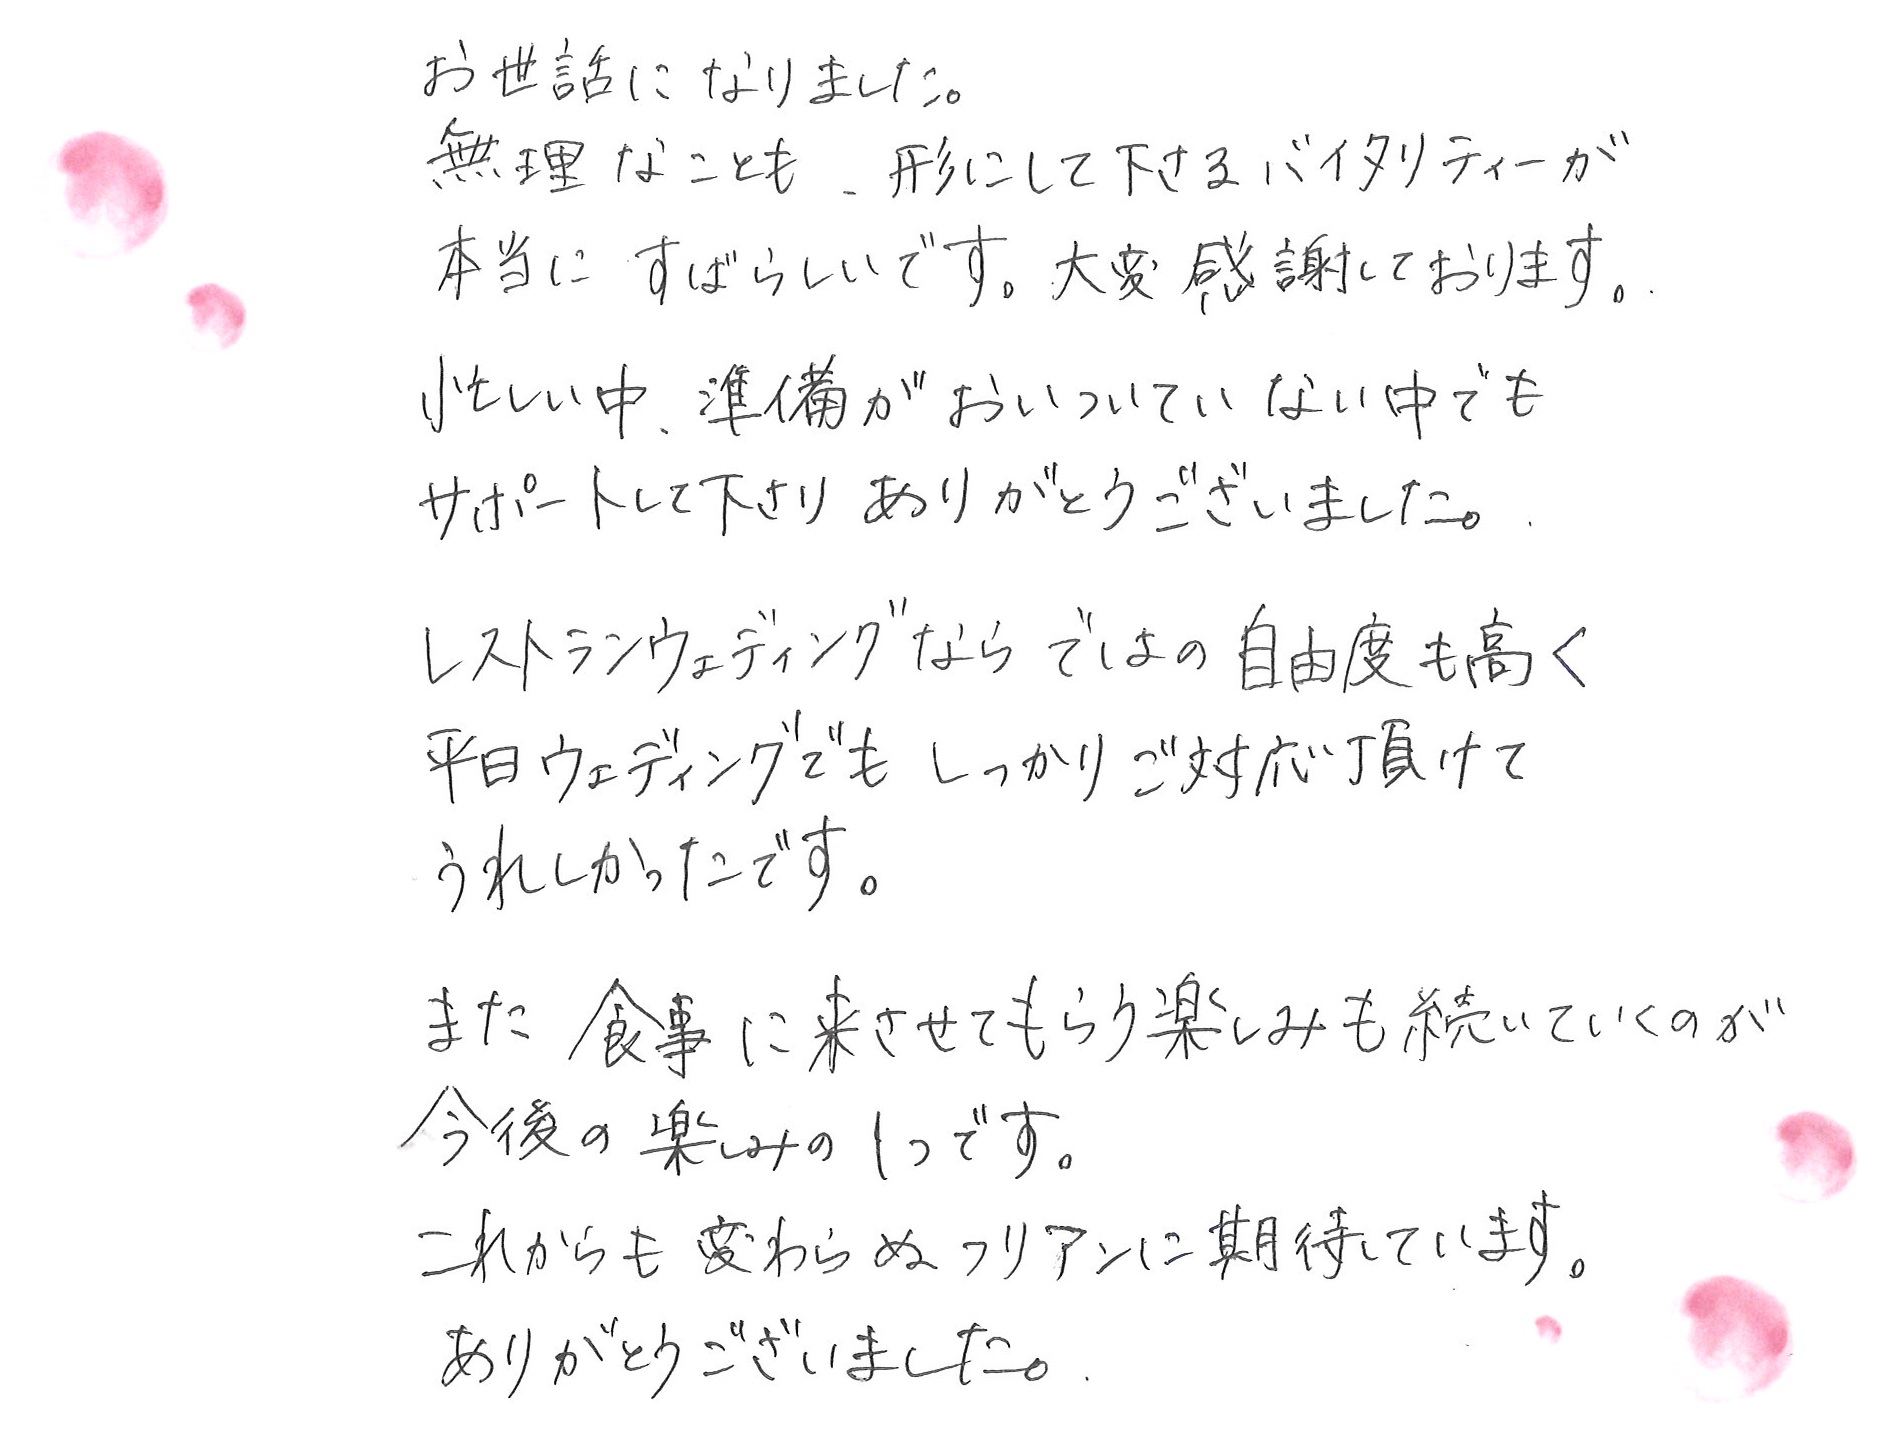 お世話になりました。
無理なことも、形にして下さるバイタリティーが
本当にすばらしいです。大変感謝しております。
忙しい中、準備がおいついていない中でも
サポートして下さりありがとうございました。
レストランウェディングならではの自由度も高く
平日ウェディングでもしっかりご対応頂けて
うれしかったです。
また食事に来させてもらう楽しみも続いていくのが
今後の楽しみの1つです。
これからも変わらぬフリアンに期待しています。
ありがとうございました。